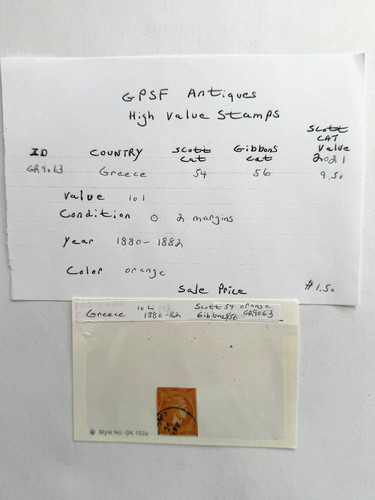 GPSF Antiques
High Value Stamps
Scott
CAT
ID COUNTRY Scott Gibbons Value
cat cat 2021
GR9063 Greece 54 56 9.50
Value 10 l
Condition O 2 margins
Year 1880-1882
Color orange
Sale Price $1.50
10 L Scott 54 orange
Greece 1880-82 Gibbons 56 GR9063
Style No. GN 102s